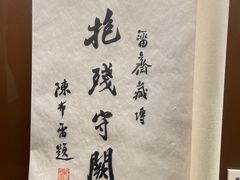 甾齋藏塼
抱殘守闕
陳布雷題